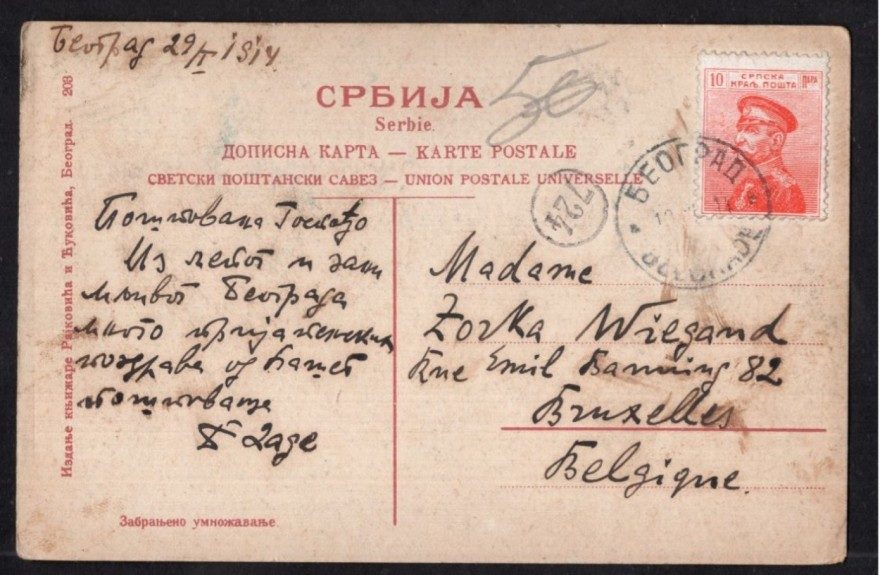 Београд 29/II 1914
50
СРБИЈА
Serbie.
ДОПИСНА КАРТА — KARTE POSTALE
СВЕТСКИ ПОШТАНСКИ САВЕЗ — UNION POSTALE UNIVERSELLE
10 СРПСКА ПАРА
КРАЉ. ПОШТА
БЕОГРАД
BELGRADE
724
Поштована Госпођо
Из лепог и зани
мљивог Београда
много пријатељских
поздрава од Вашег
поштоваоца
Madame
Zorka Wiegand
Rue Emil Banning 82
Bruxelles
Belgique.
Издање књижаре Рајковића и Ћуковића, Београд. 203
Забрањено умножавање.